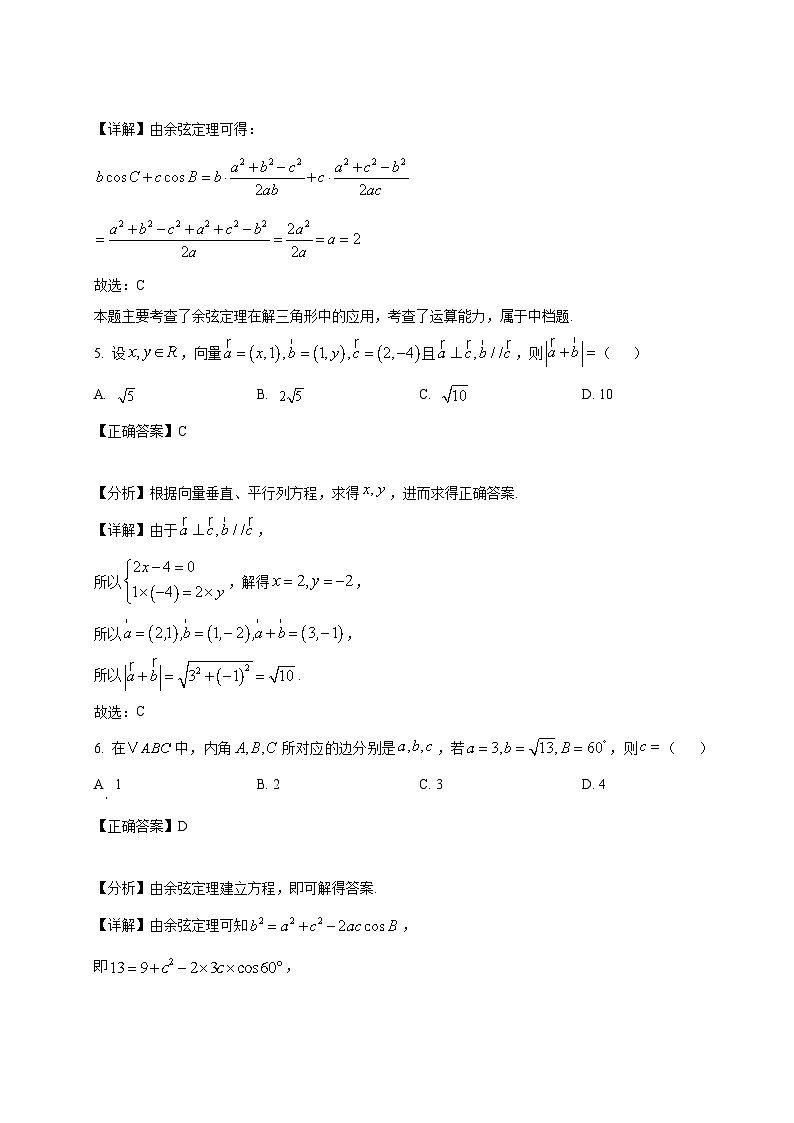 【详解】由余弦定理可得：
b cos C + c cos B = b · (a² + b² − c²)/(2ab) + c · (a² + c² − b²)/(2ac)
= (a² + b² − c² + a² + c² − b²)/(2a) = 2a²/(2a) = a = 2
故选：C
本题主要考查了余弦定理在解三角形中的应用，考查了运算能力，属于中档题.
5. 设 x, y ∈ R，向量 a = (x,1), b = (1, y), c = (2, −4) 且 a ⊥ c, b / / c，则 |a + b| =（　）
A. √5 B. 2√5 C. √10 D. 10
【正确答案】C
【分析】根据向量垂直、平行列方程，求得 x, y，进而求得正确答案.
【详解】由于 a ⊥ c, b / / c，
所以 { 2x − 4 = 0
1×(−4) = 2× y ，解得 x = 2, y = −2，
所以 a = (2,1), b = (1, − 2), a + b = (3, −1)，
所以 |a + b| = √(3² + (−1)²) = √10 .
故选：C
6. 在 V ABC 中，内角 A, B, C 所对应的边分别是 a, b, c，若 a = 3, b = √13, B = 60°，则 c =（　）
A. 1 B. 2 C. 3 D. 4
【正确答案】D
【分析】由余弦定理建立方程，即可解得答案.
【详解】由余弦定理可知 b² = a² + c² − 2ac cos B，
即 13 = 9 + c² − 2×3c×cos60°，